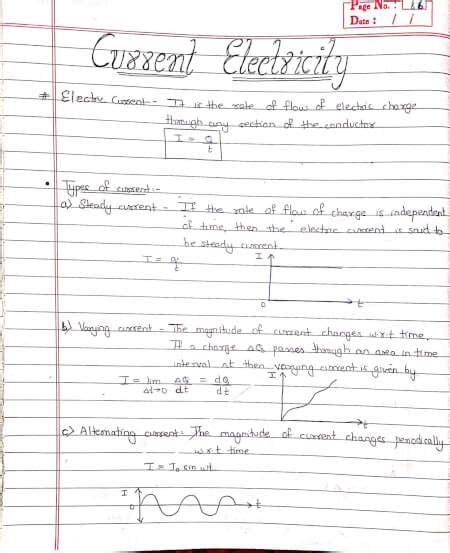 Page No. : 66
Date : / /
Current Electricity
* Electric Current - It is the rate of flow of electric charge
through any section of the conductor
I = Q/t
• Types of current:-
a) Steady current - If the rate of flow of charge is independent
of time, then the electric current is said to
be steady current.
I = q/t
I
0 t
b) Varying current - The magnitude of current changes w.r.t time.
If a charge ΔQ passes through an area in time
interval Δt then varying current is given by
I = lim Δt→0 ΔQ/dt = dQ/dt
I
t
c) Alternating current:- The magnitude of current changes periodically
w.r.t time
I = I₀ sin wt
I
0 t